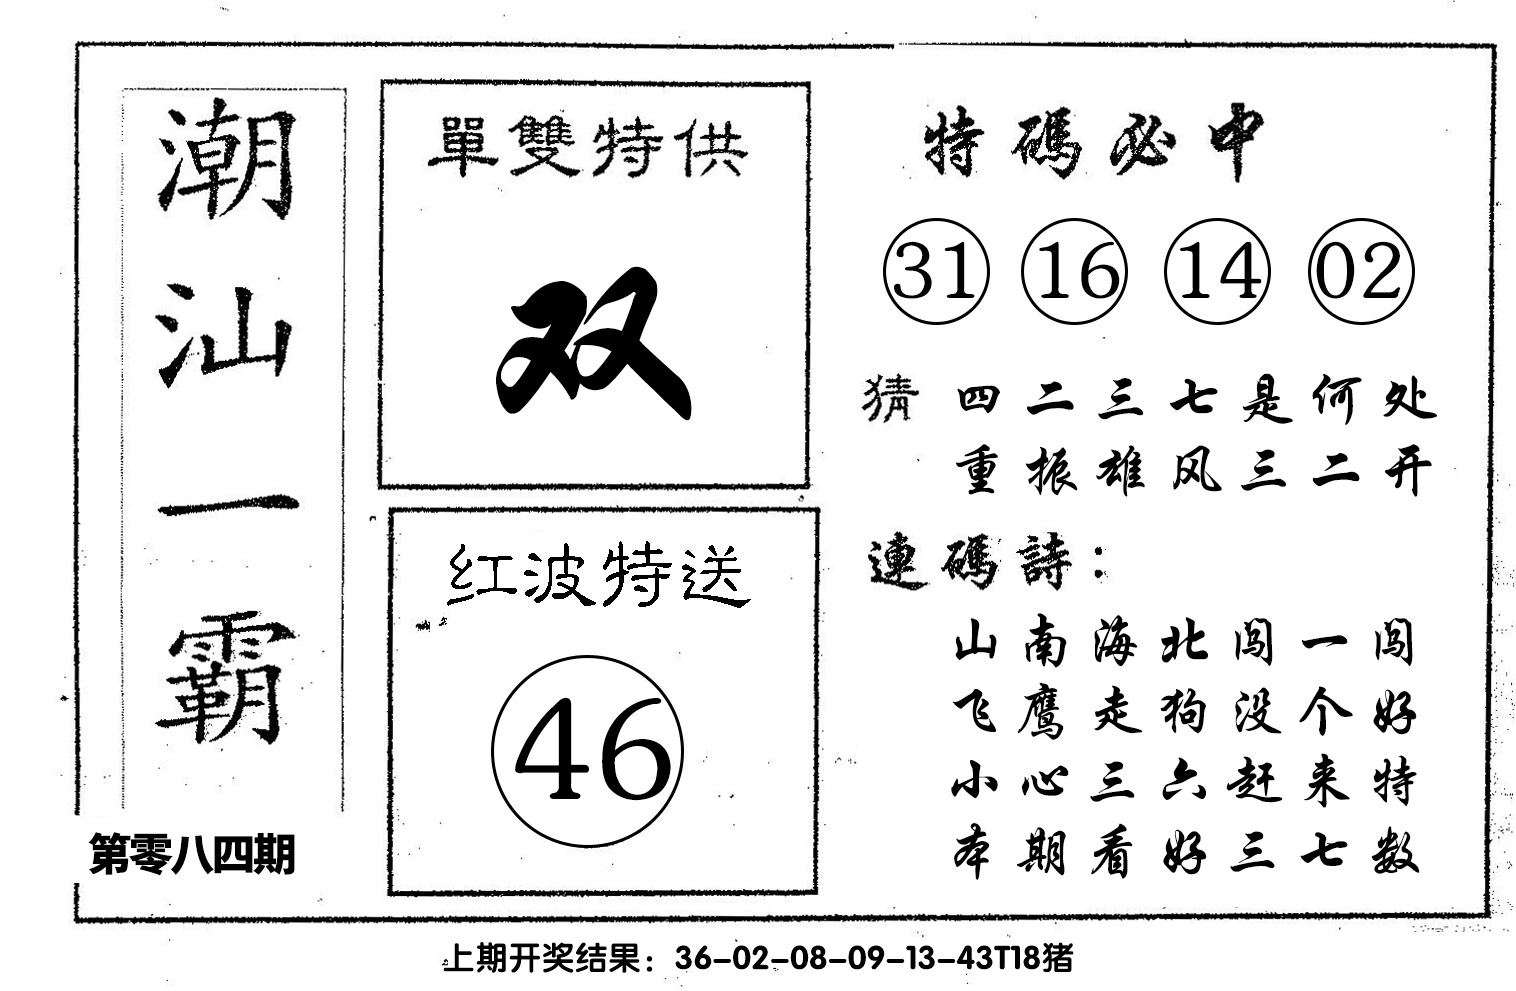 潮汕一霸
第零八四期
單雙特供
双
红波特送
46
特碼必中
31 16 14 02
猜 四二三七是何处
重振雄风三二开
連碼詩：
山南海北闯一闯
飞鹰走狗没个好
小心三六赶来特
本期看好三七数
上期开奖结果：36-02-08-09-13-43T18猪